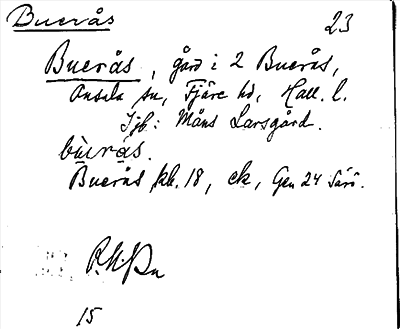 Buerås 23
Buerås, gård i 2 Buerås,
Onsala sn, Fjäre hd, Hall. l.
Ijb: Måns Larsgård.
bùrás.
Buerås kh. 18, ek, Gen 24 Särö.
15